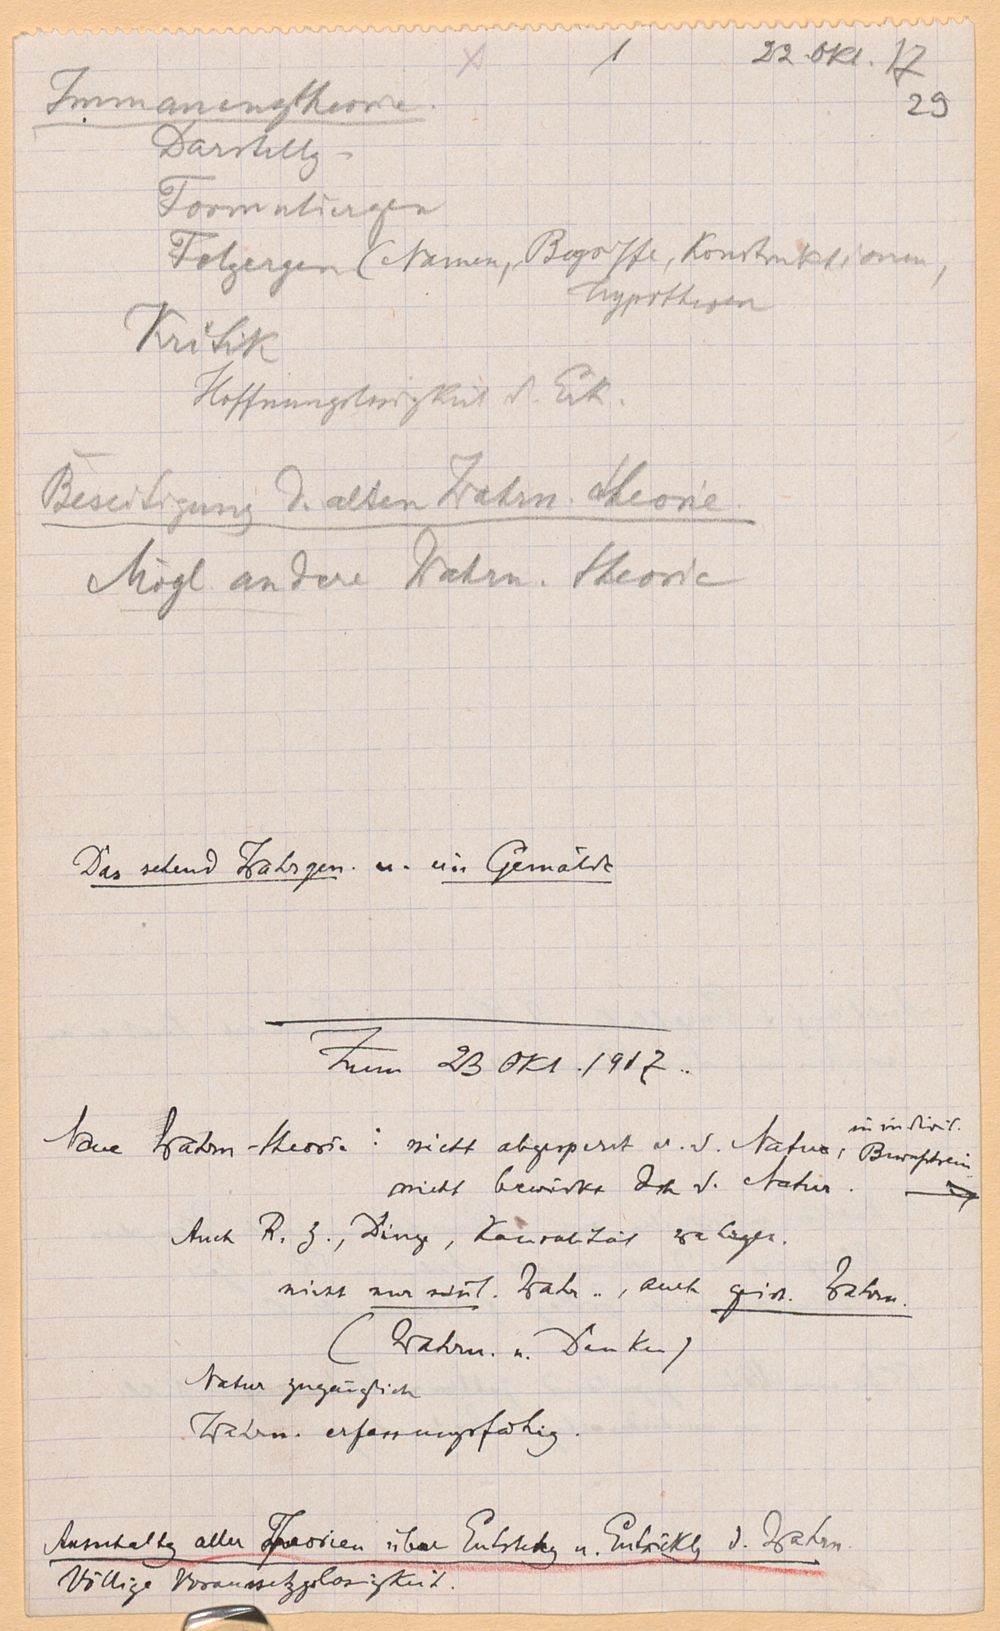 1 22. Okt. 17
29
Immanenztheorie.
Darstellg -
Formuliergen
Folgergen (Namen, Begriffe, Konstruktionen,
Hypothesen
Kritik
Hoffnungslosigkeit d. Erk.
Beseitigung d. alten Wahrn. theorie.
Mögl andere Wahrn. theorie
Das sehend Wahrgen. u. ein Gemälde
Zum 23 Okt. 1917.
Neue Wahrn-theorie: nicht abgesperrt v. d. Natur, in individ.
Bewußtsein
nicht bewirkt dch d. Natur.
Auch R. Z., Dinge, Kausalität wahrgen.
nicht nur sinnl. Wahr.., auch geist. Wahrn.
(Wahrn. u. Denken)
Natur zugänglich
Wahrn. erfassungsfähig.
Ausschaltg aller Theorien über Entstehg u. Entwicklg d. Wahrn.
Völlige Voraussetzgslosigkeit.